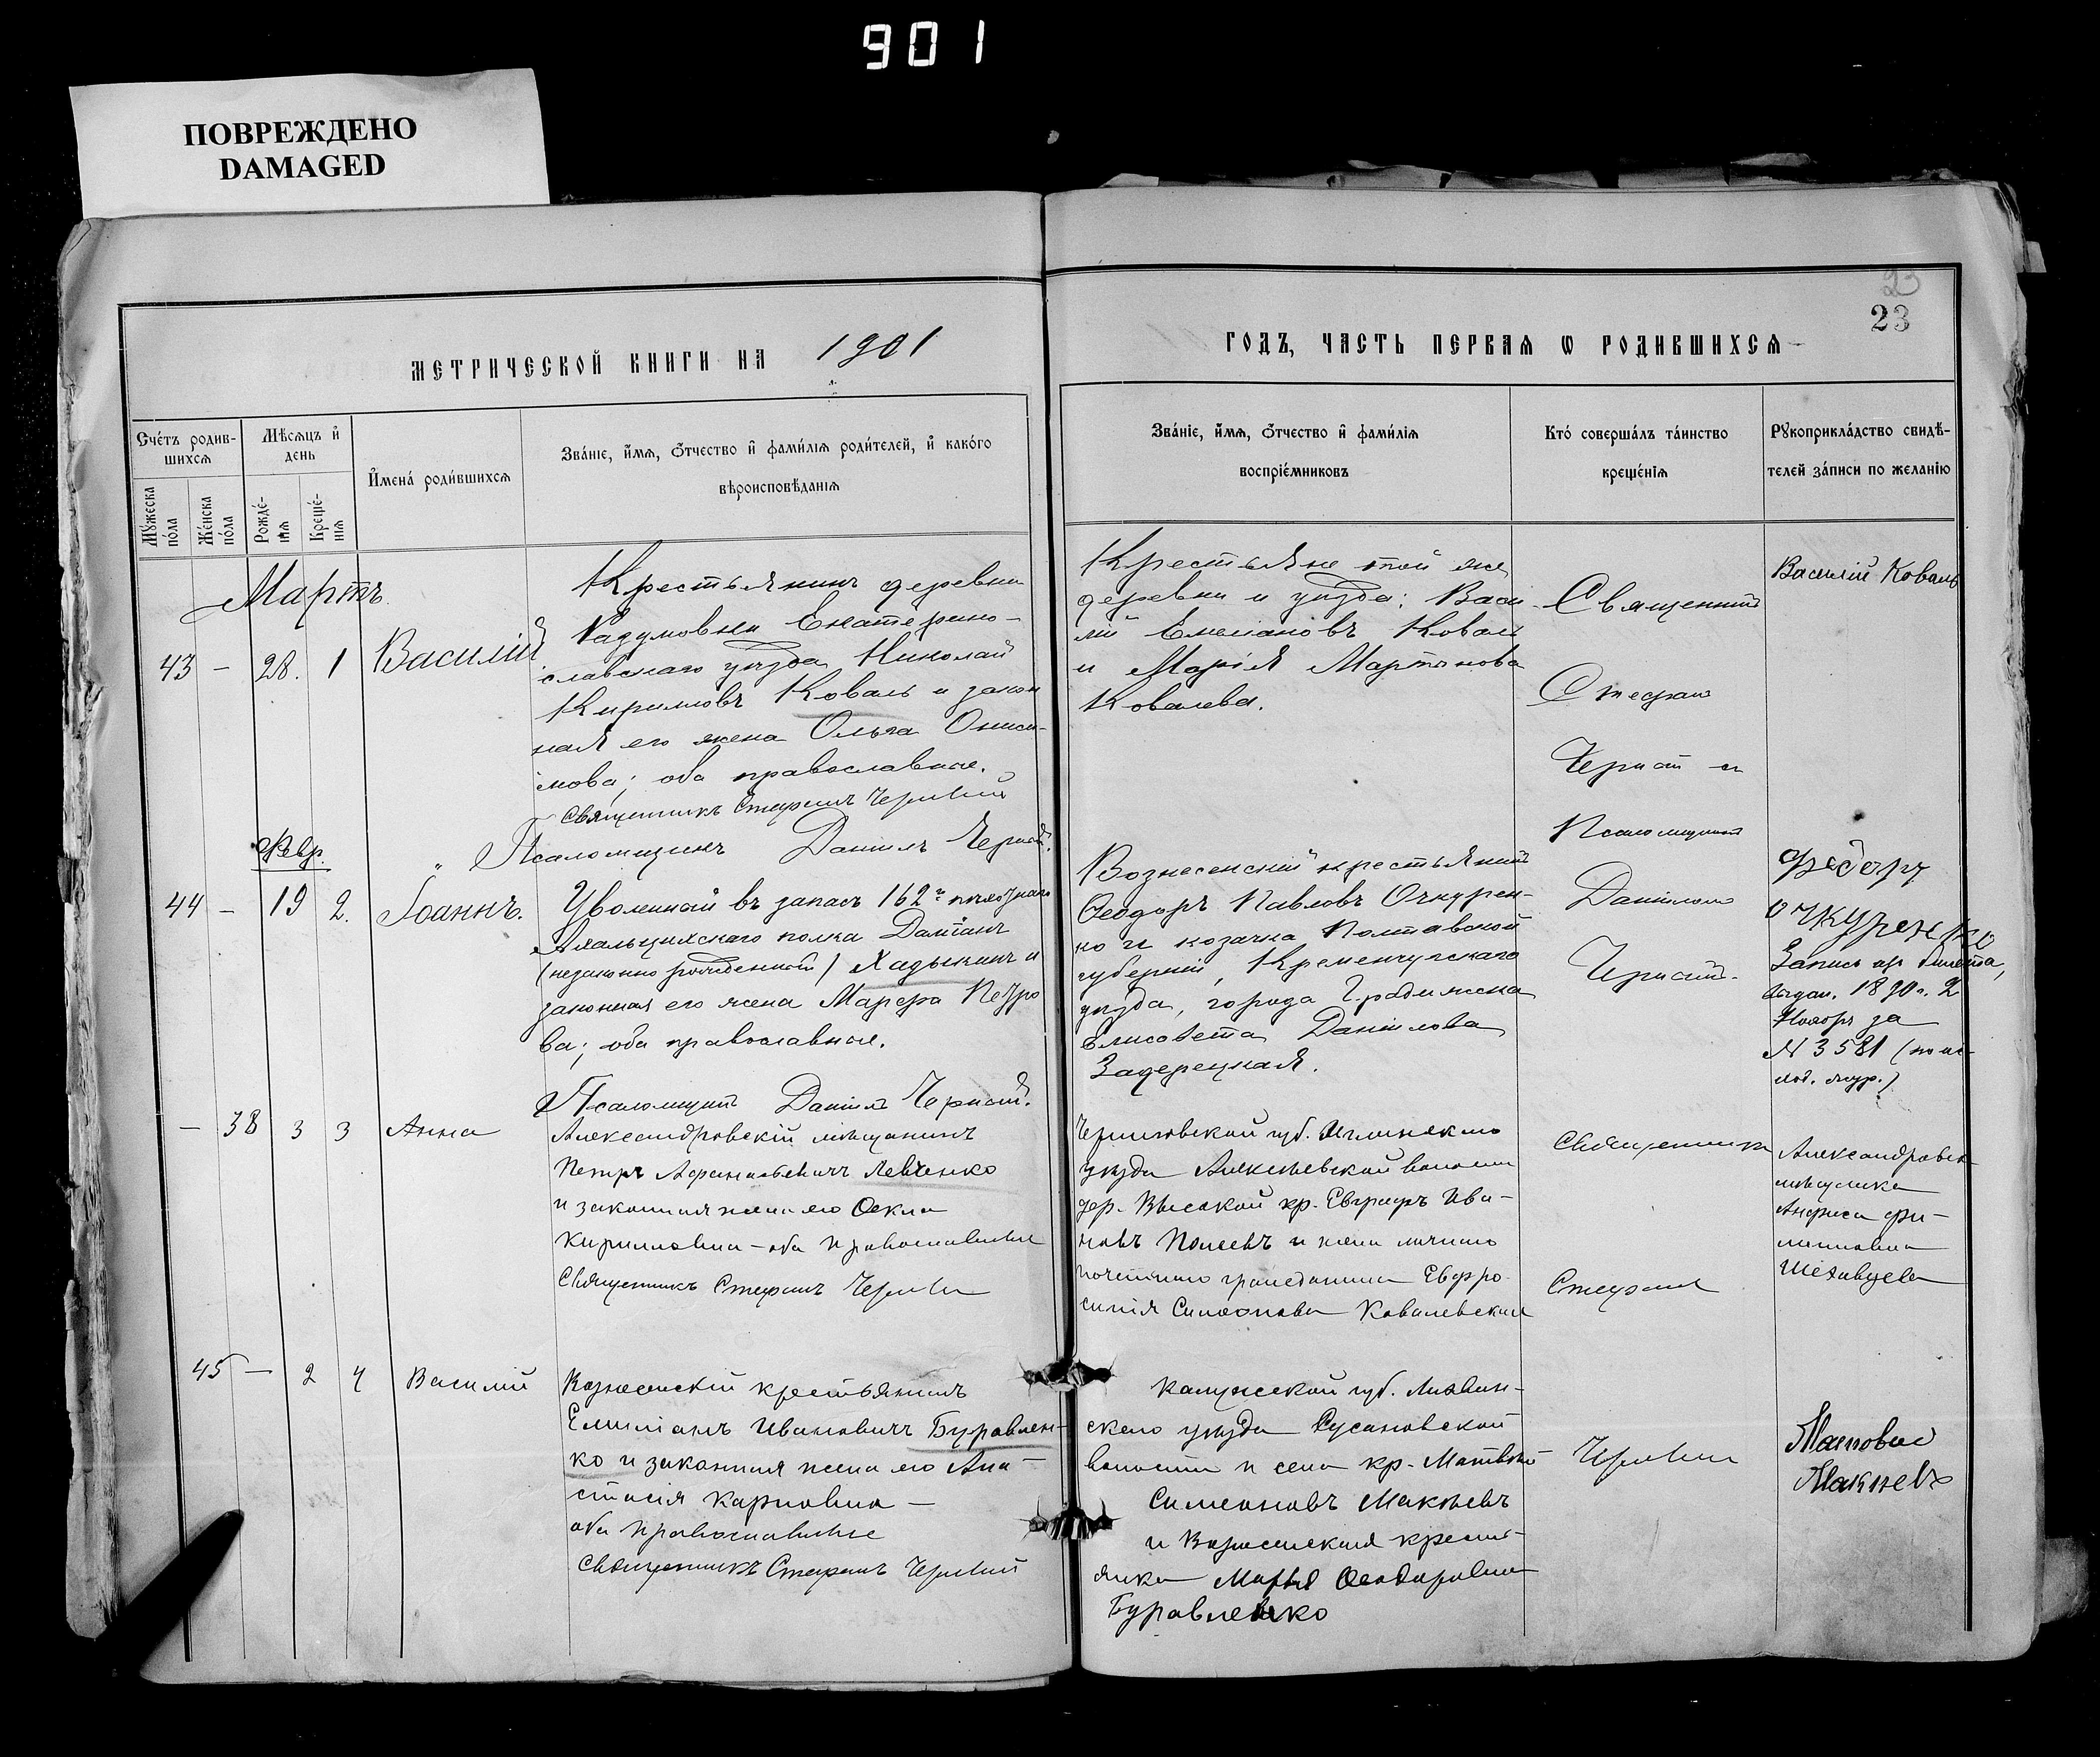 901
ПОВРЕЖДЕНО
DAMAGED
23
23
МЕТРИЧЕСКОЙ КНИГИ НА 1901
ГОДЪ, ЧАСТЬ ПЕРВАЯ Ѡ РОДИВШИХСЯ
Счётъ родив-
шихся
Мꙋжеска пола
Женска пола
Мѣсяцъ и
день
Рожде-
нія
Креще-
нія
Имена родившихся
Званіе, имя, отчество и фамилія родителей, и какого
вѣроисповѣданія
Званіе, имя, отчество и фамилія
воспріемниковъ
Кто совершалъ таинство
крещенія
Рꙋкоприкладство свидѣ-
телей записи по желанію
Мартъ
43 – 28. 1 Василій
Крестьянинъ деревни
Екатерино-
славскаго уѣзда Николай
Кирилловъ Коваль и закон
ная его жена ОльгаОниси-
мова; оба православные.
Священникъ Стефанъ Чернявскій
Псаломщикъ Даніилъ
Крестьяне той же
деревни и уѣзда: Васи-
лій Емеліановъ Коваль
и Марія Мартынова
Ковалева.
Священникъ
Стефанъ
и
Псаломщикъ
Даніилом
Василій Коваль
Февр.
44 – 19 2. Іоаннъ.
Уволенный въ запасъ 162го пѣхотнаго
Ахалцихскаго полка Даміанъ
(незаконно рожденный) Хадыкинъ и
законная его жена Марфа Петро
ва; оба православные.
Псаломщикъ Даніилъ
Вознесенскій крестьянинъ
Ѳеодоръ Павловъ Очкурен-
ко и козачка Полтавской
губерніи, Кременчугскаго
уѣзда, города Градижска
Елисавета Даніилова
Задерецкая.
Федоръ
Очкуренко
Запись пр. билета,
выдан. 1890 г. 2
Ноября за
N 3581 (по ис-
ход. жур.)
– 38 3 3 Анна
Александровскій мѣщанинъ
Петръ Афанасьевичъ Левченко
и законная жена его Ѳекла
Кирилловна – оба православные
Священникъ Стефанъ
Черниговской губ. Мглинскаго
уѣзда Алексеевской волости
дер. Высокой кр. Евграфъ Ива-
новъ Полеевъ и жена личнаго
почетнаго гражданина Евфро-
синія Симеонова Ковалевская
Священникъ
Стефанъ
Александровск
мѣщанка
Анфиса Фи-
липповна
45 – 2 4 Василій
Вознесенскій крестьянинъ
Емиліанъ Ивановичъ Буравлен-
ко и законная жена его Ана-
стасія Карповна –
оба православные
Священникъ Стефанъ
Калужской губ. Лихвин-
скаго уѣзда Русановской
волости и села кр. Матвѣй
Симеоновъ Макѣевъ
и Вознесенская кресть-
янка Марья Ѳеодоровна
Буравленко
Макѣевъ